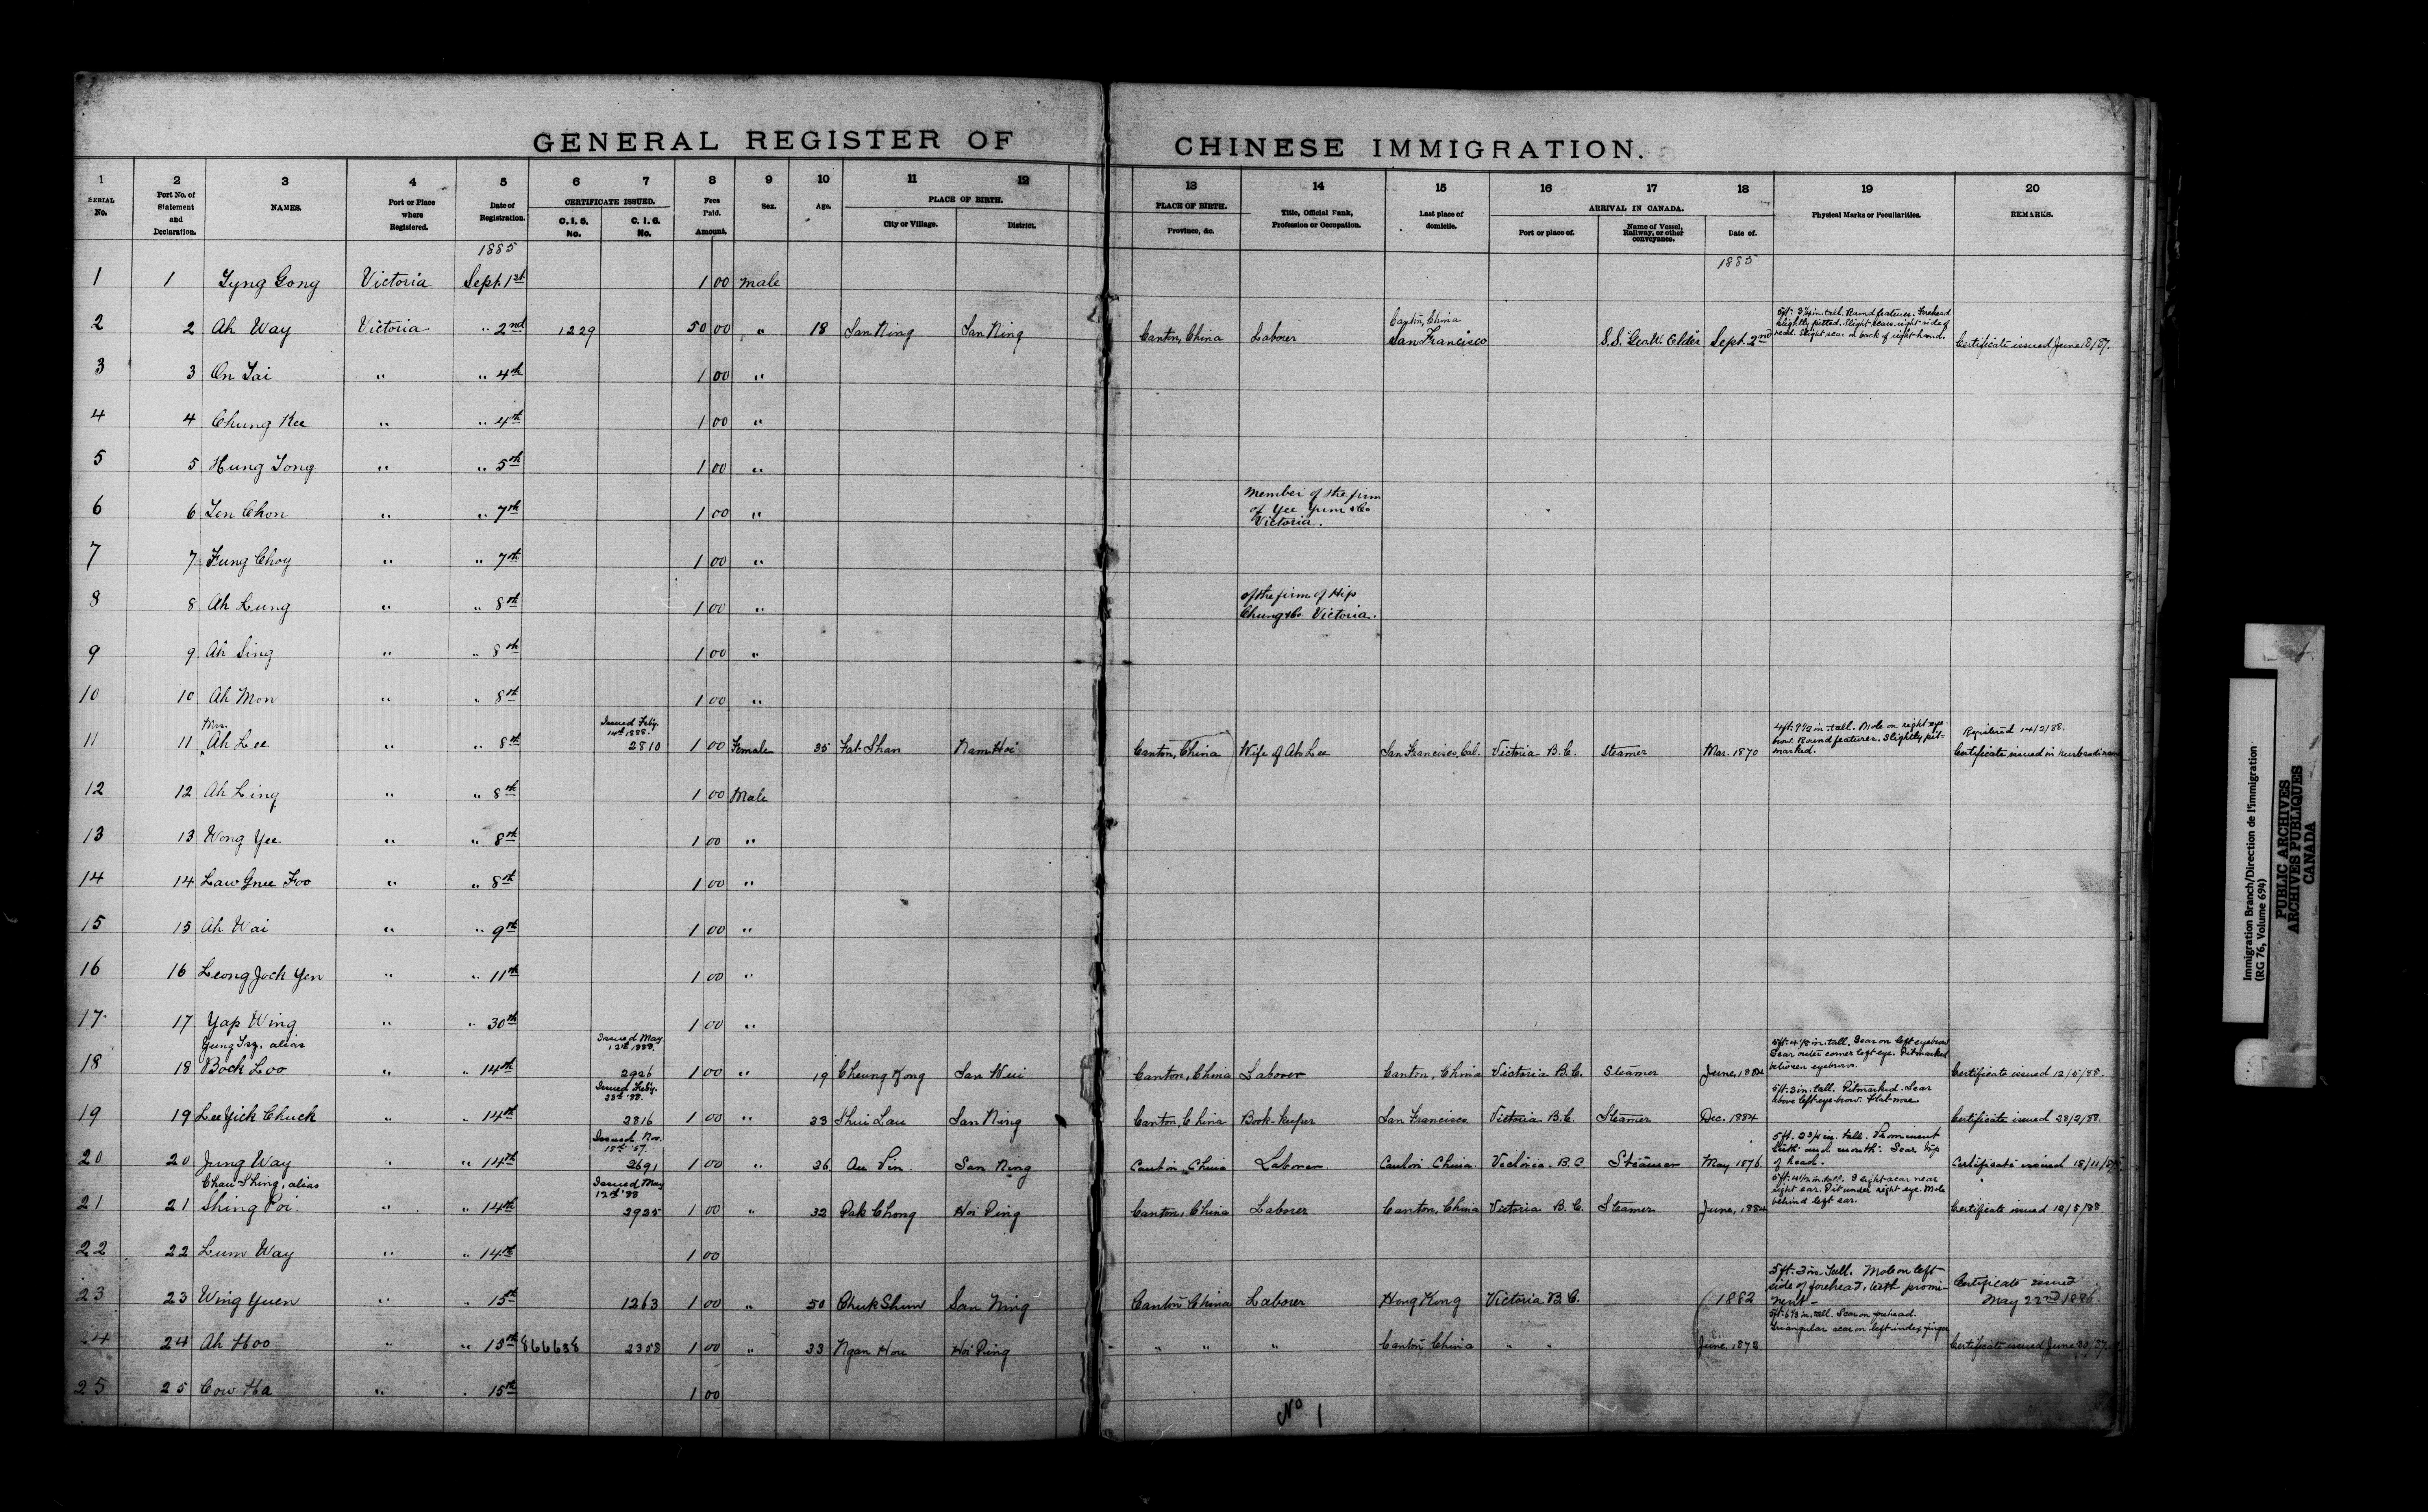 GENERAL REGISTER OF CHINESE IMMIGRATION.
1 2 3 4 5 6 7 8 9 10 11 12 13 14 15 16 17 18 19 20
SERIAL No. Port No. of Statement and Declaration. NAMES. Port or Place where Registered. Date of Registration. CERTIFICATE ISSUED. C. I. 5. No. C. I. 6. No. Fees Paid. Amount. Sex. Age. PLACE OF BIRTH. City or Village. District. PLACE OF BIRTH. Province, &c. Title, Official Rank, Profession or Occupation. Last place of domicile. ARRIVAL IN CANADA. Port or place of. Name of Vessel, Railway, or other conveyance. Date of. Physical Marks or Peculiarities. REMARKS.
1885 1885
1 1 Tyng Gong Victoria Sept. 1st 1 00 Male
2 2 Ah Way Victoria " 2nd 1229 50 00 " 18 San Ning San Ning Canton, China Laborer Canton, China San Francisco S.S. Geo. W. Elder Sept. 2nd 5ft. 3¼ in. tall. Round features. Forehead slightly pitted. Slight scars right side of head. Slight scar on back of right hand. Certificate issued June 8/87.
3 3 On Tai " " 4th 1 00 "
4 4 Chung Kee " " 4th 1 00 "
5 5 Hung Tong " " 5th 1 00 "
6 6 Len Chon " " 7th 1 00 " Member of the firm of Yee Yum & Co. Victoria.
7 7 Fung Choy " " 7th 1 00 "
8 8 Ah Lung " " 8th 1 00 " of the firm of Hip Chung & Co. Victoria.
9 9 Ah Sing " " 8th 1 00 "
10 10 Ah Mon " " 8th 1 00 "
11 11 Mrs. Ah Lee " " 8th Issued Feby. 14th 1888. 2810 1 00 Female 35 Fat Shan Nam Hoi Canton, China Wife of Ah Lee San Francisco, Cal. Victoria B.C. Steamer Mar. 1870 4ft. 9½ in. tall. Mole on right eye-brow. Round features. Slightly pit-marked. Registered 14/2/88. Certificate issued in husband's name
12 12 Ah Ling " " 8th 1 00 Male
13 13 Wong Yee. " " 8th 1 00 "
14 14 Law Gnee Foo " " 8th 1 00 "
15 15 Ah Wai " " 9th 1 00 "
16 16 Leong Jock Yen " " 11th 1 00 "
17 17 Yap Wing " " 30th 1 00 "
18 18 alias Bock Loo " " 14th Issued May 12th 1888. 2926 1 00 " 19 Cheung Kong San Wui Canton, China Laborer Canton, China Victoria B.C. Steamer June, 1884 5ft. 4½ in. tall. Scar on left eyebrow Scar outer corner left eye. Pitmarked between eyebrows. Certificate issued 12/5/88.
19 19 Lee Yick Chuck " " 14th Issued Feby. 23rd '88. 2816 1 00 " 33 Shui Lau San Ning Canton, China Book-keeper San Francisco Victoria B.C. Steamer Dec. 1884 5ft. 3 in. tall. Pitmarked. Scar above left eye-brow. Flat nose. Certificate issued 23/2/88.
20 20 Jung Way " " 14th Issued Nov. 15th '87. 2691 1 00 " 26 San Ning Canton China Laborer Canton China. Victoria. B.C. Steamer May 1876 5ft. 0¾ in. tall. Prominent teeth and mouth. Scar top of head. Certificate issued 15/11/87.
21 21 Chau Shing, alias Shing Poi. " " 14th Issued May 12th '88 2925 1 00 " 32 Pak Chong Hoi Ping Canton, China Laborer Canton, China Victoria B.C. Steamer June, 1884 5ft. 4½ in. tall. Slight scar near right ear. Pit under right eye. Mole behind left ear. Certificate issued 12/5/88
22 22 Lum Way " " 14th 1 00
23 23 Wing Yuen " " 15th 1263 1 00 " 50 Chuk Shun San Ning Canton China Laborer Hong Kong Victoria B.C. 1882 5ft. 3 in. tall. Mole on left side of forehead, teeth prominent - Certificate issued May 22nd 1886.
24 24 Ah Hoo " " 15th 866638 2358 1 00 " 33 Ngan Hou Hoi Ping " " " Canton China " " June, 1878 tall. Scar on forehead. Triangular scar on left index finger Certificate issued June 30/87.
25 25 Cow Ha " " 15th 1 00
No 1
Immigration Branch/Direction de l'immigration
(RG 76, Volume 694)
PUBLIC ARCHIVES
ARCHIVES PUBLIQUES
CANADA